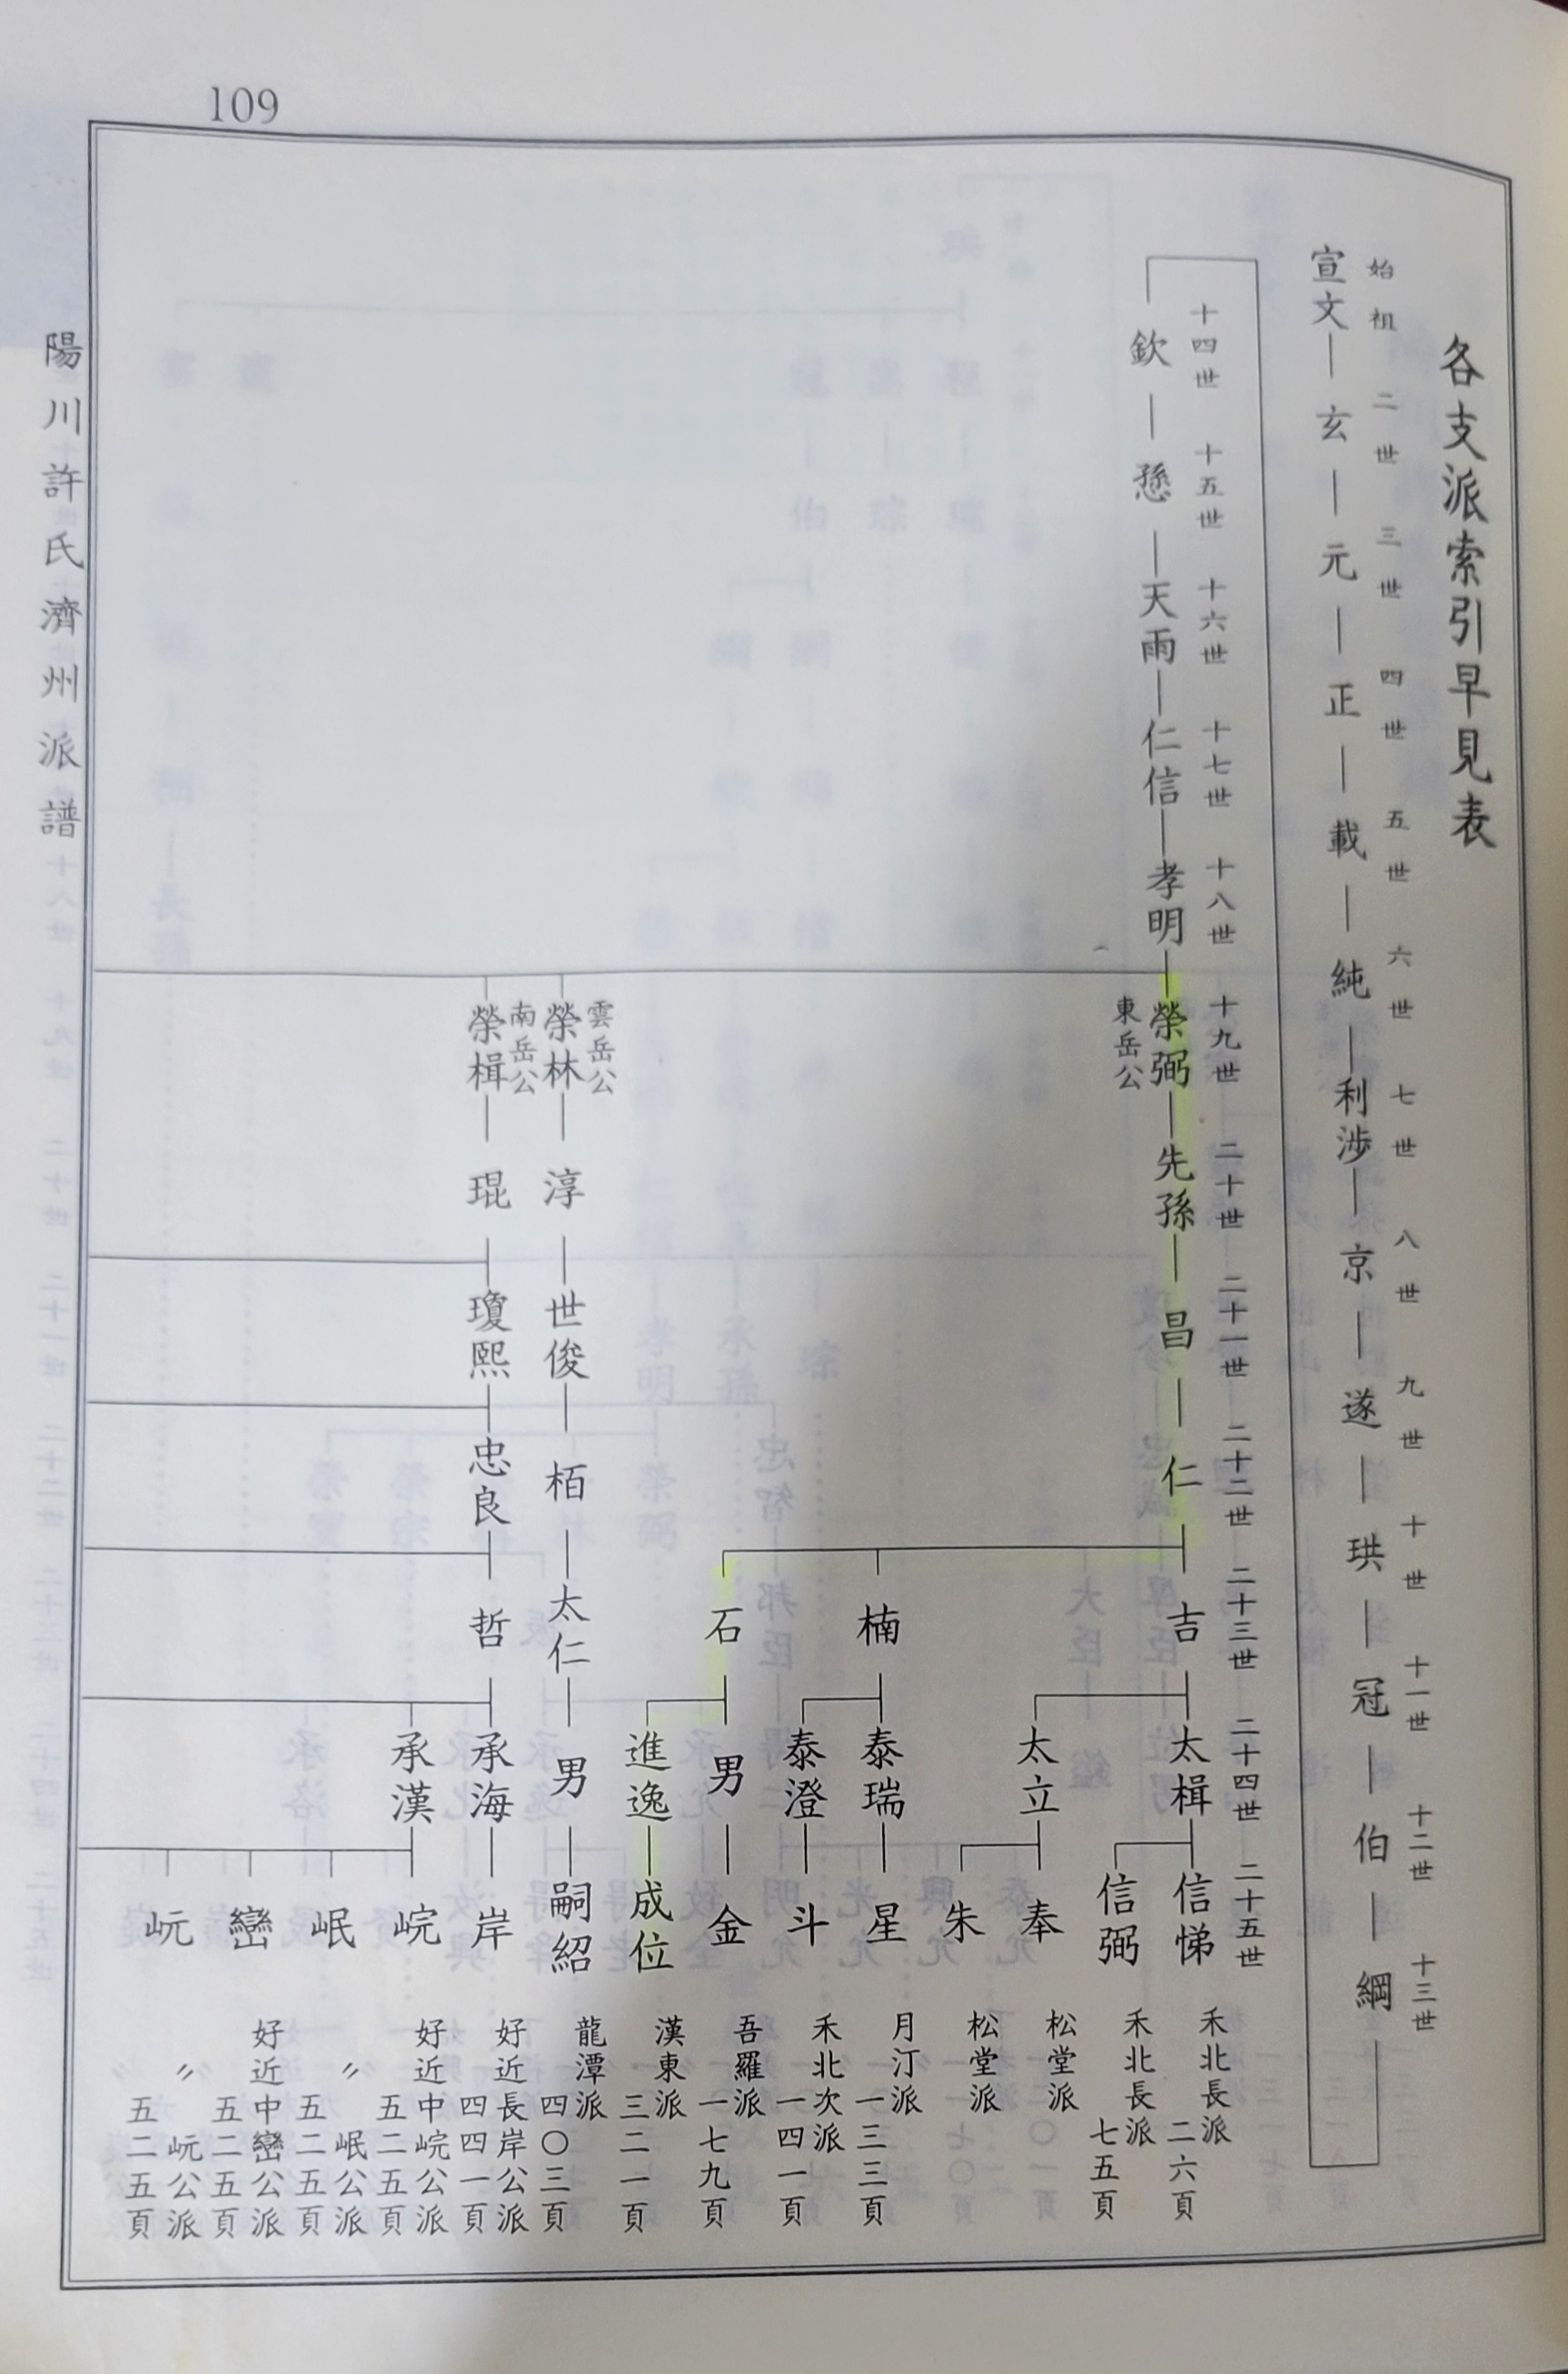 109
各支派索引早見表
始祖 二世 三世 四世 五世 六世 七世 八世 九世 十世 十一世 十二世 十三世
宣文―玄―元―正―載―純―利涉―京―遂―珙―冠―伯―綱
十四世 十五世 十六世 十七世 十八世 十九世 二十世 二十一世 二十二世 二十三世 二十四世 二十五世
欽―愻―天雨―仁信―孝明―榮弼―先孫―昌―仁―吉―太楫―信悌
東岳公
禾北長派
二六頁
信弼
禾北長派
七五頁
太立―奉
松堂派
朱
松堂派
楠―泰瑞―星
月汀派
一三三頁
泰澄―斗
禾北次派
一四一頁
石―男―金
吾羅派
一七九頁
進逸―成位
漢東派
三二一頁
雲岳公
榮林―淳―世俊―栢―太仁―男―嗣紹
龍潭派
四〇三頁
南岳公
榮楫―琨―瓊熙―忠良―哲―承海―岸
好近長岸公派
四四一頁
承漢―峴
好近中峴公派
五二五頁
岷
〃 岷公派
五二五頁
巒
好近中巒公派
五二五頁
岏
〃 岏公派
五二五頁
陽川許氏濟州派譜